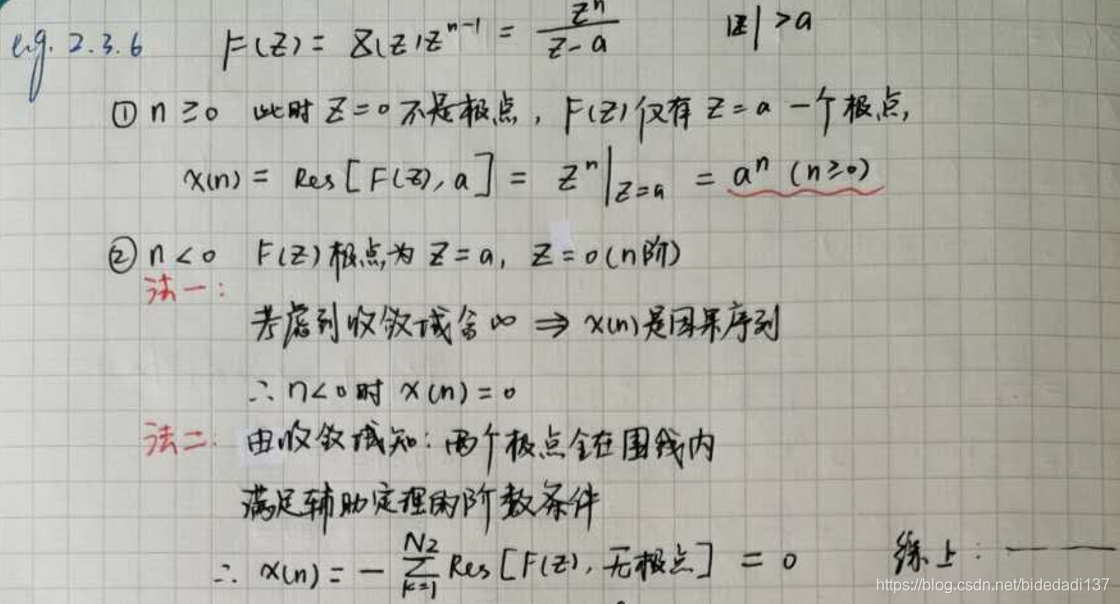 e.g. 2.3.6 F(z) = X(z)z^{n-1} = \frac{z^n}{z-a} |z| > a
① n ≥ 0 此时 z = 0 不是极点, F(z)仅有 z = a 一个极点,
x(n) = Res[F(z), a] = z^n|_{z=a} = a^n (n≥0)
② n < 0 F(z)极点为 z = a, z = 0 (n阶)
法一:
考虑到收敛域含∞ ⇒ x(n)是因果序列
∴ n<0时 x(n) = 0
法二: 由收敛域知: 两个极点全在围线内
满足辅助定理的阶数条件
∴ x(n) = - \sum_{k=1}^{N2} Res[F(z), 无极点] = 0 综上: ——
https://blog.csdn.net/bidedadi137